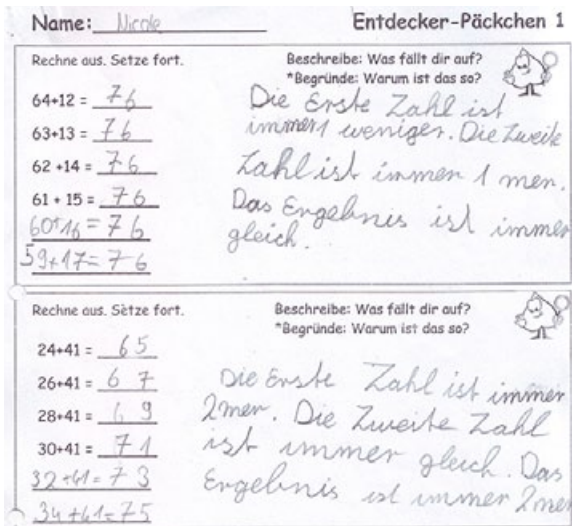 Name: Nicole
Entdecker-Päckchen 1
Rechne aus. Setze fort.
64+12 = 76
63+13 = 76
62 +14 = 76
61 + 15 = 76
60+16 = 76
59+17= 76
Beschreibe: Was fällt dir auf?
*Begründe: Warum ist das so?
Die Erste Zahl ist
immer 1 weniger. Die Zweite
Zahl ist immer 1 mer.
Das Ergebnis ist immer
gleich.
Rechne aus. Setze fort.
24+41 = 65
26+41 = 67
28+41 = 69
30+41 = 71
32+41= 73
34+41=75
Beschreibe: Was fällt dir auf?
*Begründe: Warum ist das so?
Die Erste Zahl ist immer
2mer. Die Zweite Zahl
ist immer gleich. Das
Ergebnis ist immer 2mer